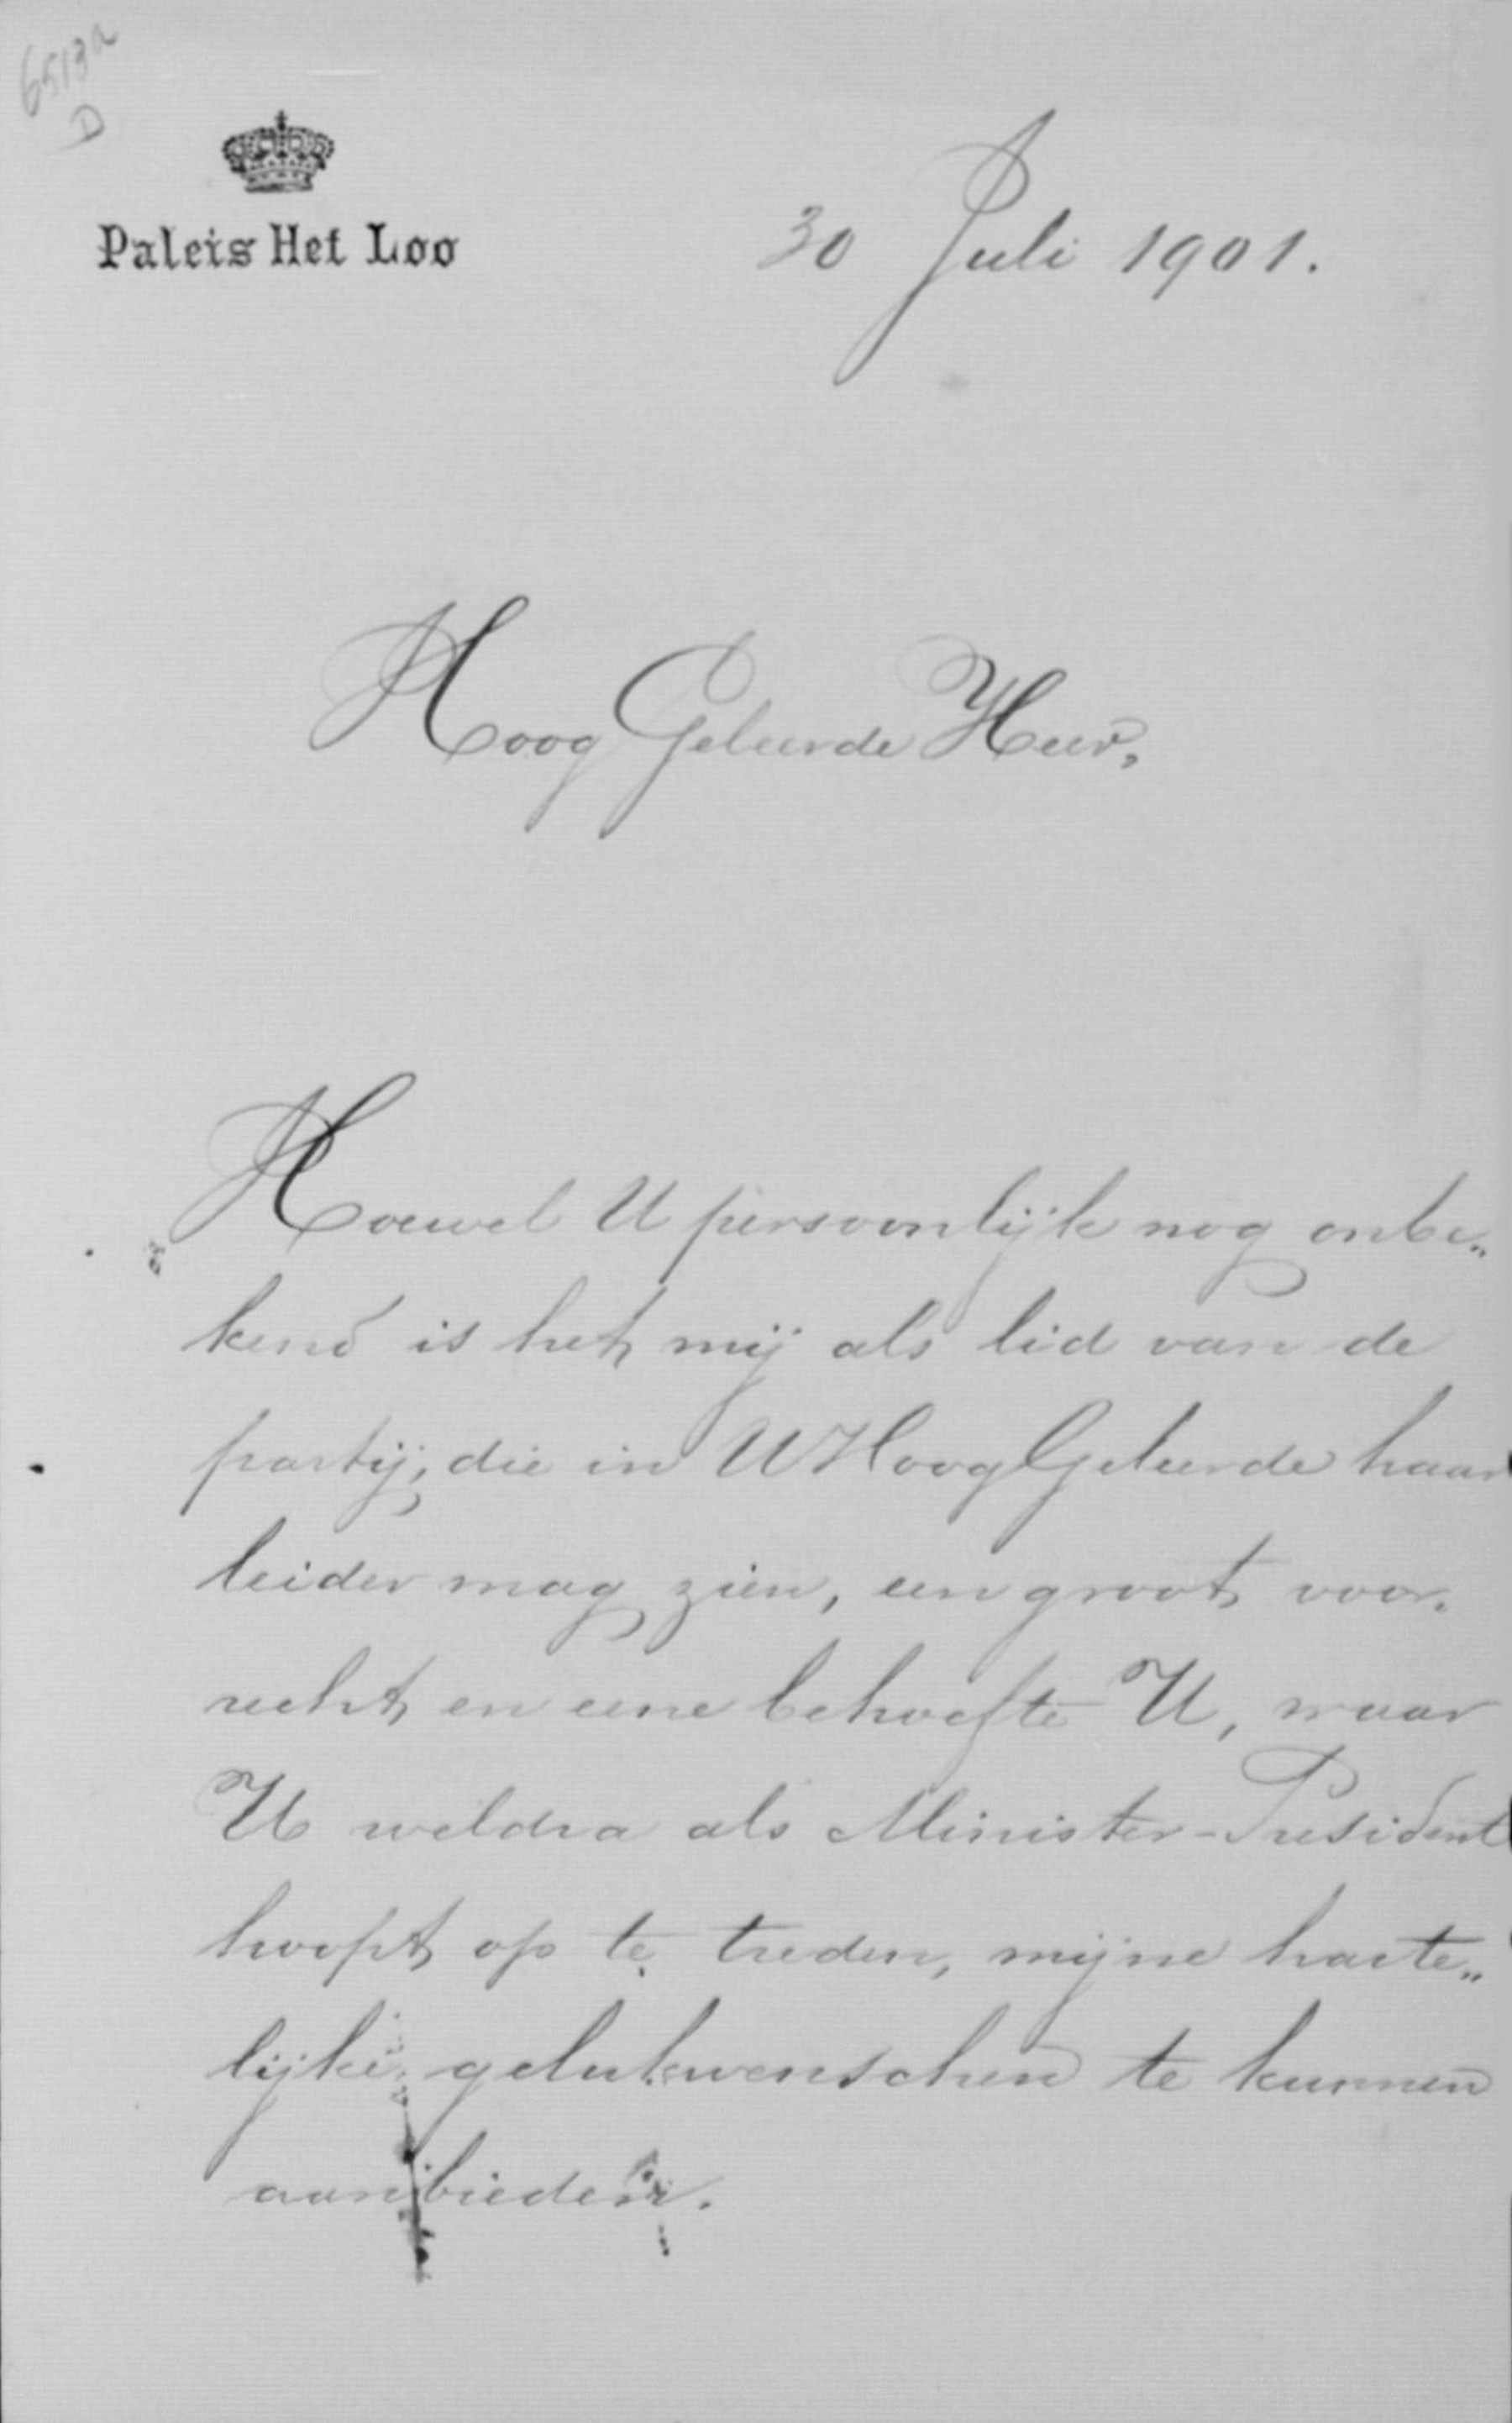 6513a
D
Paleis Het Loo
30 Juli 1901.
Hoog Geleerde Heer,
Hoewel U persoonlijk nog onbe„
kend is het mij als lid van de
partij, die in UHoogGeleerde haar
leider mag zien, een groot voor„
recht en eene behoefte U, waar
U weldra als Minister-President
hoopt op te treden, mijne harte„
lijke gelukwenschen te kunnen
aanbieden.